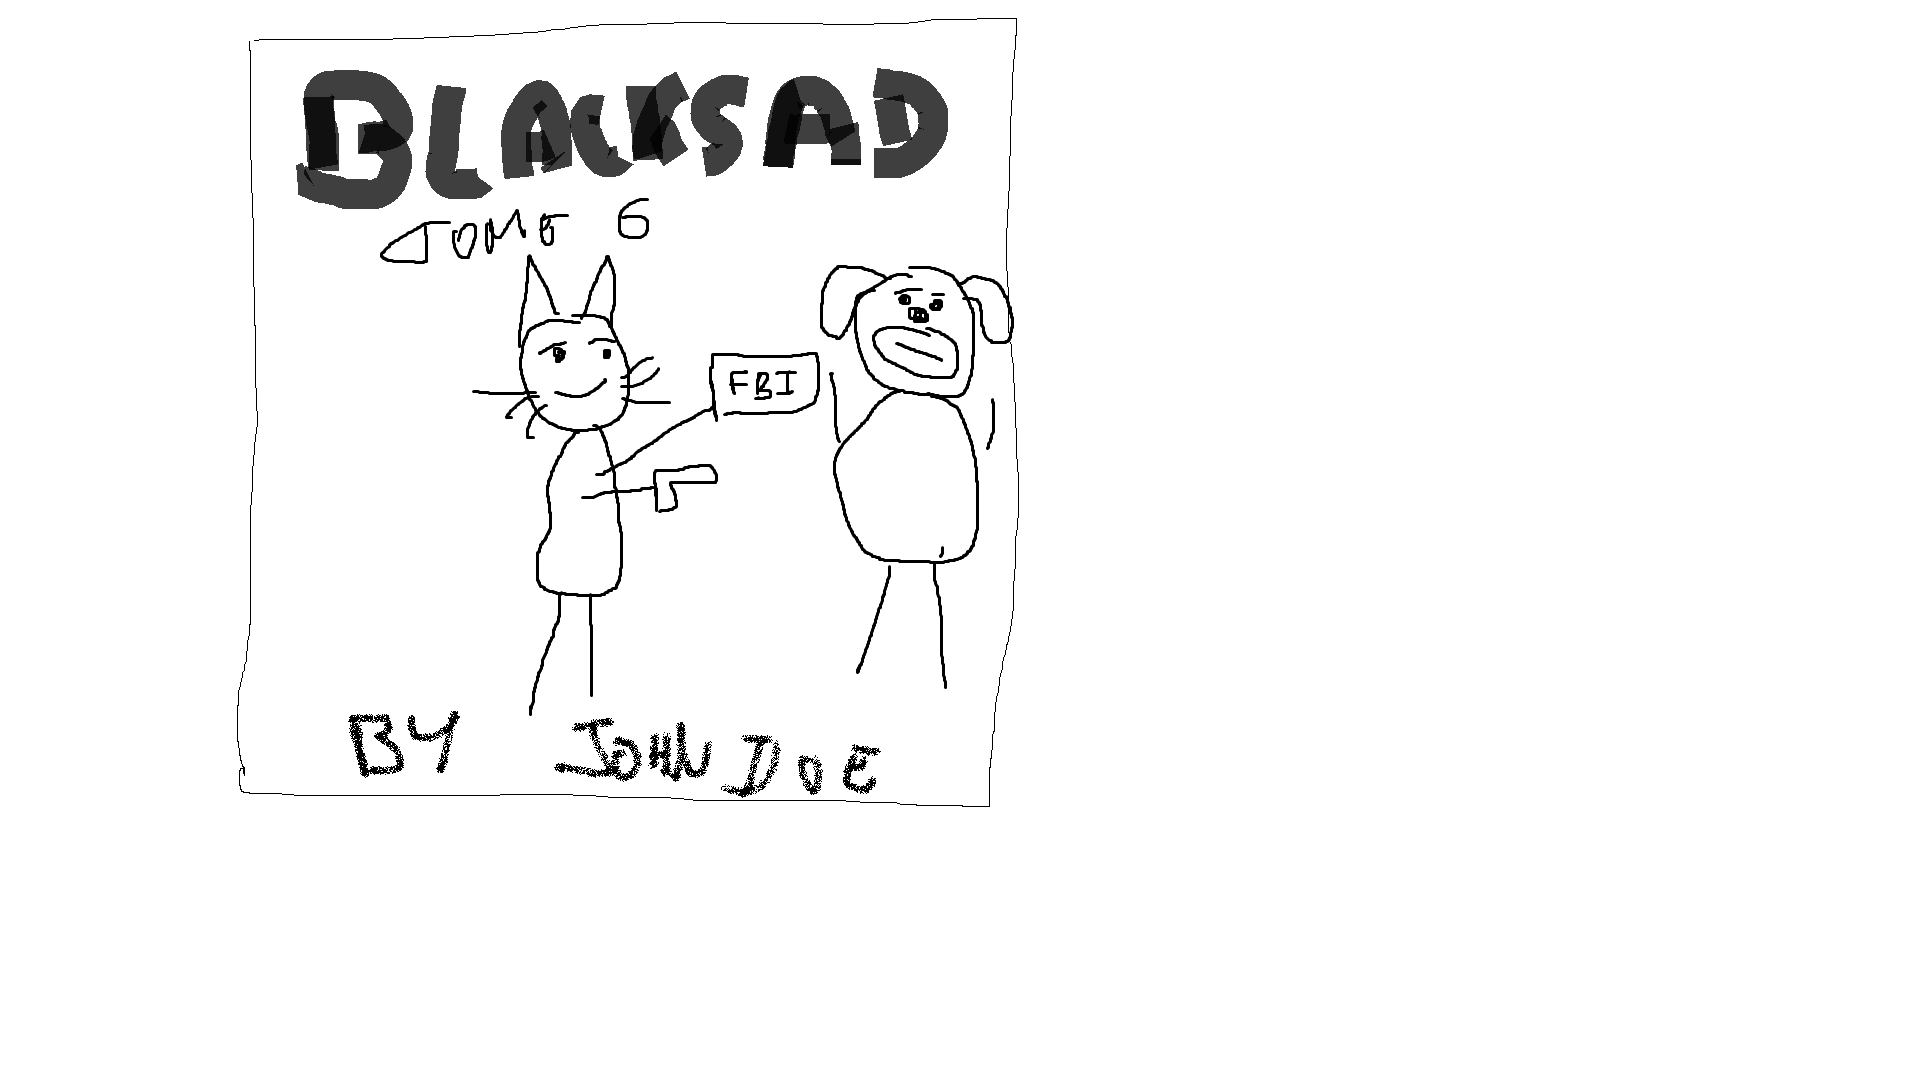 BLACKSAD
TOME 6
FBI
BY JOHN DOE